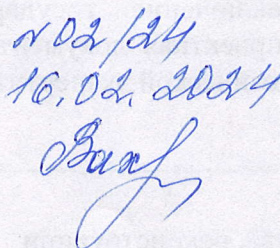 №02/24
16.02.2024